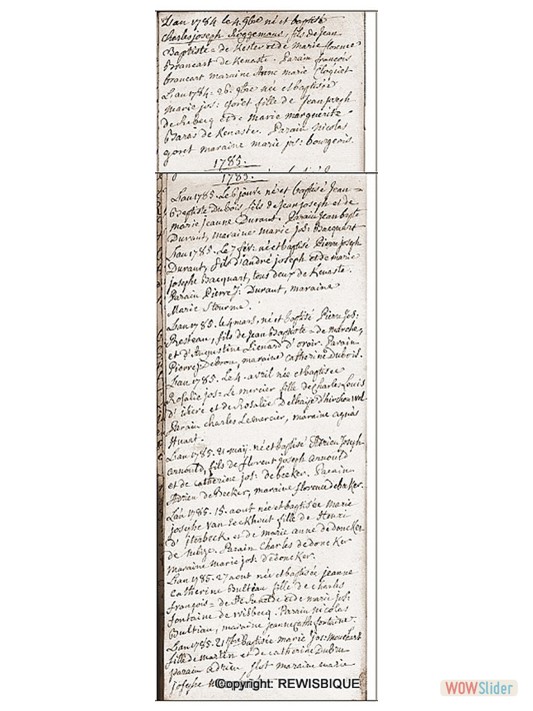 L'an 1784 le 4 9bre né et baptisé
Charles joseph Roggemans, fils de jean
Baptiste = de Hester et de marie florence
Brancart de Kenaste. Parain françois
brancart maraine Anne marie
L'an 1784. 26. 9bre née et baptisée
marie jos: goret fille de jean joseph
de Rebecq et de marie marguerite
Baras de Kenaste. Parain Nicolas
goret maraine marie jos: bourgeois.
1785.
1785.
L'an 1785. Le 6 né et baptisé Jean
Baptiste Dubois fils de jean joseph et de
marie jeanne Durant. Parain jean bapte
Durant, maraine marie jos: Bacquart
L'an 1785. Le 7 fév: né et baptisé Pierre joseph
Durant, fils d'andré joseph et de marie
josephe Bacquart, tous deux de Kenaste.
Parain Pierre J: Durant, maraine
Marie
L'an 1785. le 4 mars, né et baptisé Pierre jos:
fils de jean Baptiste = de marche,
et d'Augustine Lienard d'oroir. Parain
Pierre j: Debrou, maraine catherine Dubris.
L'an 1785. Le 4. avril née et baptisée
Rosalie jos: Le mercier fille de charles Louis
et de Rosalie Delhaye
Parain charles Lemercier, maraine agnès
Huart.
L'an 1785. 21 may. né et baptisé Adrien joseph
annould, fils de florent joseph annould
et de catherine jos: debecker. Parain
Adrien De Becker, maraine florence debecker.
L'an 1785. 15. aout née et baptisée marie
josephe van Eeckhout fille de Henri
d'Itterbeek et de marie anne de doncker
de Parain Charles dedoncker
maraine marie jos: dedoncker.
L'an 1785. 27 aout née et baptisée jeanne
catherine Bultiau fille de charles
françois = de et de marie jos:
fontaine de wisbecq. Parain nicolas
Bultiau, maraine jeanne cath: fontaine.
L'an 1785. 21 7bre baptisée marie jos:
fille de martin et de catherine Dubru
parain Adrien maraine marie
josephe
Copyright: REWISBIQUE
WOWSlider